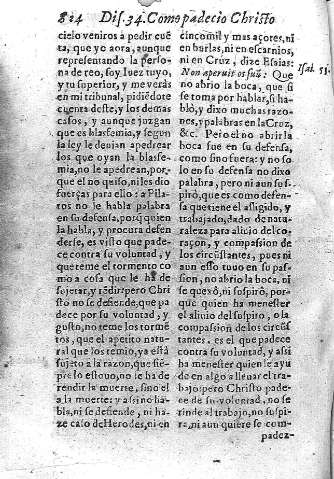 824 Dis. 34. Como padecio Christo
cielo veniros a pedir cuē
ta, que yo aora, aunque
representando la perso
na de reo, soy Iuez tuyo,
y tu superior, y me veras
en mi tribunal, pidiēdote
cuenta deste, y los demas
casos, y aunque juzgan
que es blasfemia, y segun
la ley le deuian apedrear
los que oyan la blasfe-
mia, no le apedrean, por
que el no quiso, ni les dio
fuerças para ello: a Pila-
tos no le habla palabra
en su defensa, porq̃ quien
la habla, y procura defen
derse, es visto que pade-
ce contra su voluntad, y
que teme el tormento co
mo a cosa que le ha de
sujetar, y rēdir: pero Chri
sto no se defiende, que pa
dece por su voluntad, y
gusto, no teme los tormē
tos, que el apetito natu-
ral que los temio, ya está
sujeto a la razon, que siē-
pre lo estuuo, no le ha de
rendir la muerte, sino el
a la muerte: y assi no ha-
bla, ni se defiende, ni ha-
ze caso de Herodes, ni en
cinco mil y mas açotes, ni
en burlas, ni en escarnios,
ni en Cruz, dize Esaias:
Non aperuit os suū: Que
no abrio la boca, que si
se toma por hablar, si ha-
blò, y dixo muchas razo-
nes, y palabras en la Cruz,
&c. Pero el no abrir la
boca fue en su defensa,
como sino fuera: y no so
lo en su defensa no dixo
palabra, pero ni aun suspi
rò, que es como defen-
sa que tiene el afligido, y
trabajado, dado de natu-
raleza para aliuio del co-
raçon, y compassion de
los circūstantes, pues ni
aun esso tuuo en su pas-
sion, no abrio la boca, ni
se quexò, ni suspirò, por-
que quien ha menester
el aliuio del suspiro, o la
compassion de los circūs
tantes, es el que padece
contra su voluntad, y assi
ha menester quien le ayu
de en algo a lleuar el tra-
bajo: pero Christo pade-
ce de su voluntad, no se
rinde al trabajo, no suspi-
ra, ni aun quiere se com-
padez-
Isai. 53.